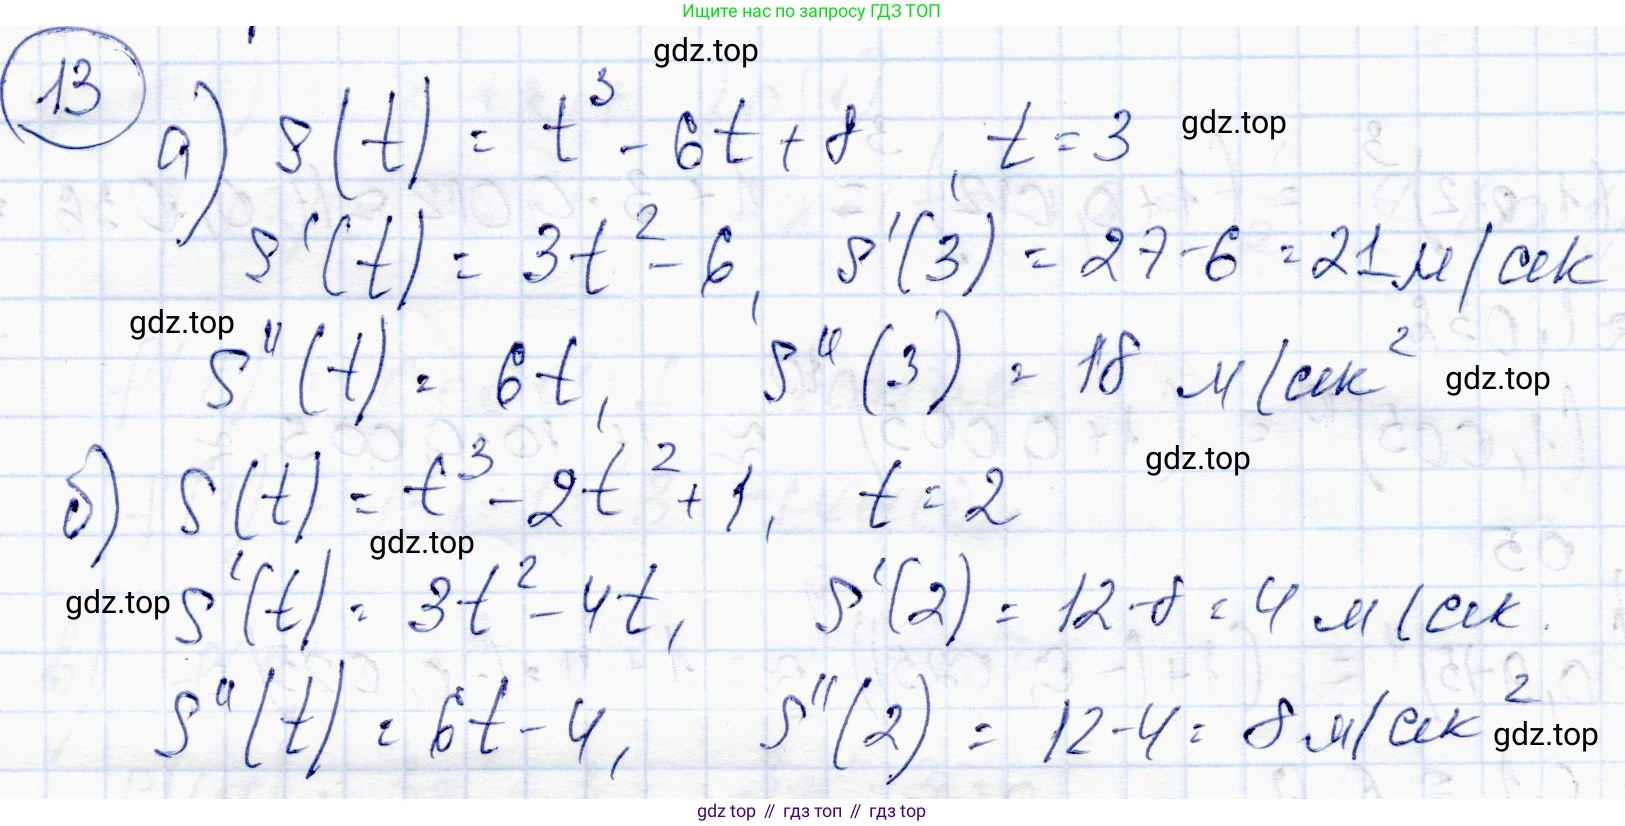 Ищите нас по запросу ГДЗ ТОП
gdz.top
13
а) S(t) = t³ - 6t + 8, t = 3 gdz.top
S'(t) = 3t² - 6, S'(3) = 27 - 6 = 21 м/сек
gdz.top
S''(t) = 6t, S''(3) = 18 м/сек² gdz.top
gdz.top
б) S(t) = t³ - 2t² + 1, t = 2
gdz.top
gdz.top S'(t) = 3t² - 4t, S'(2) = 12 - 8 = 4 м/сек.
S''(t) = 6t - 4, S''(2) = 12 - 4 = 8 м/сек² gdz.top
gdz top // гдз топ // гдз top